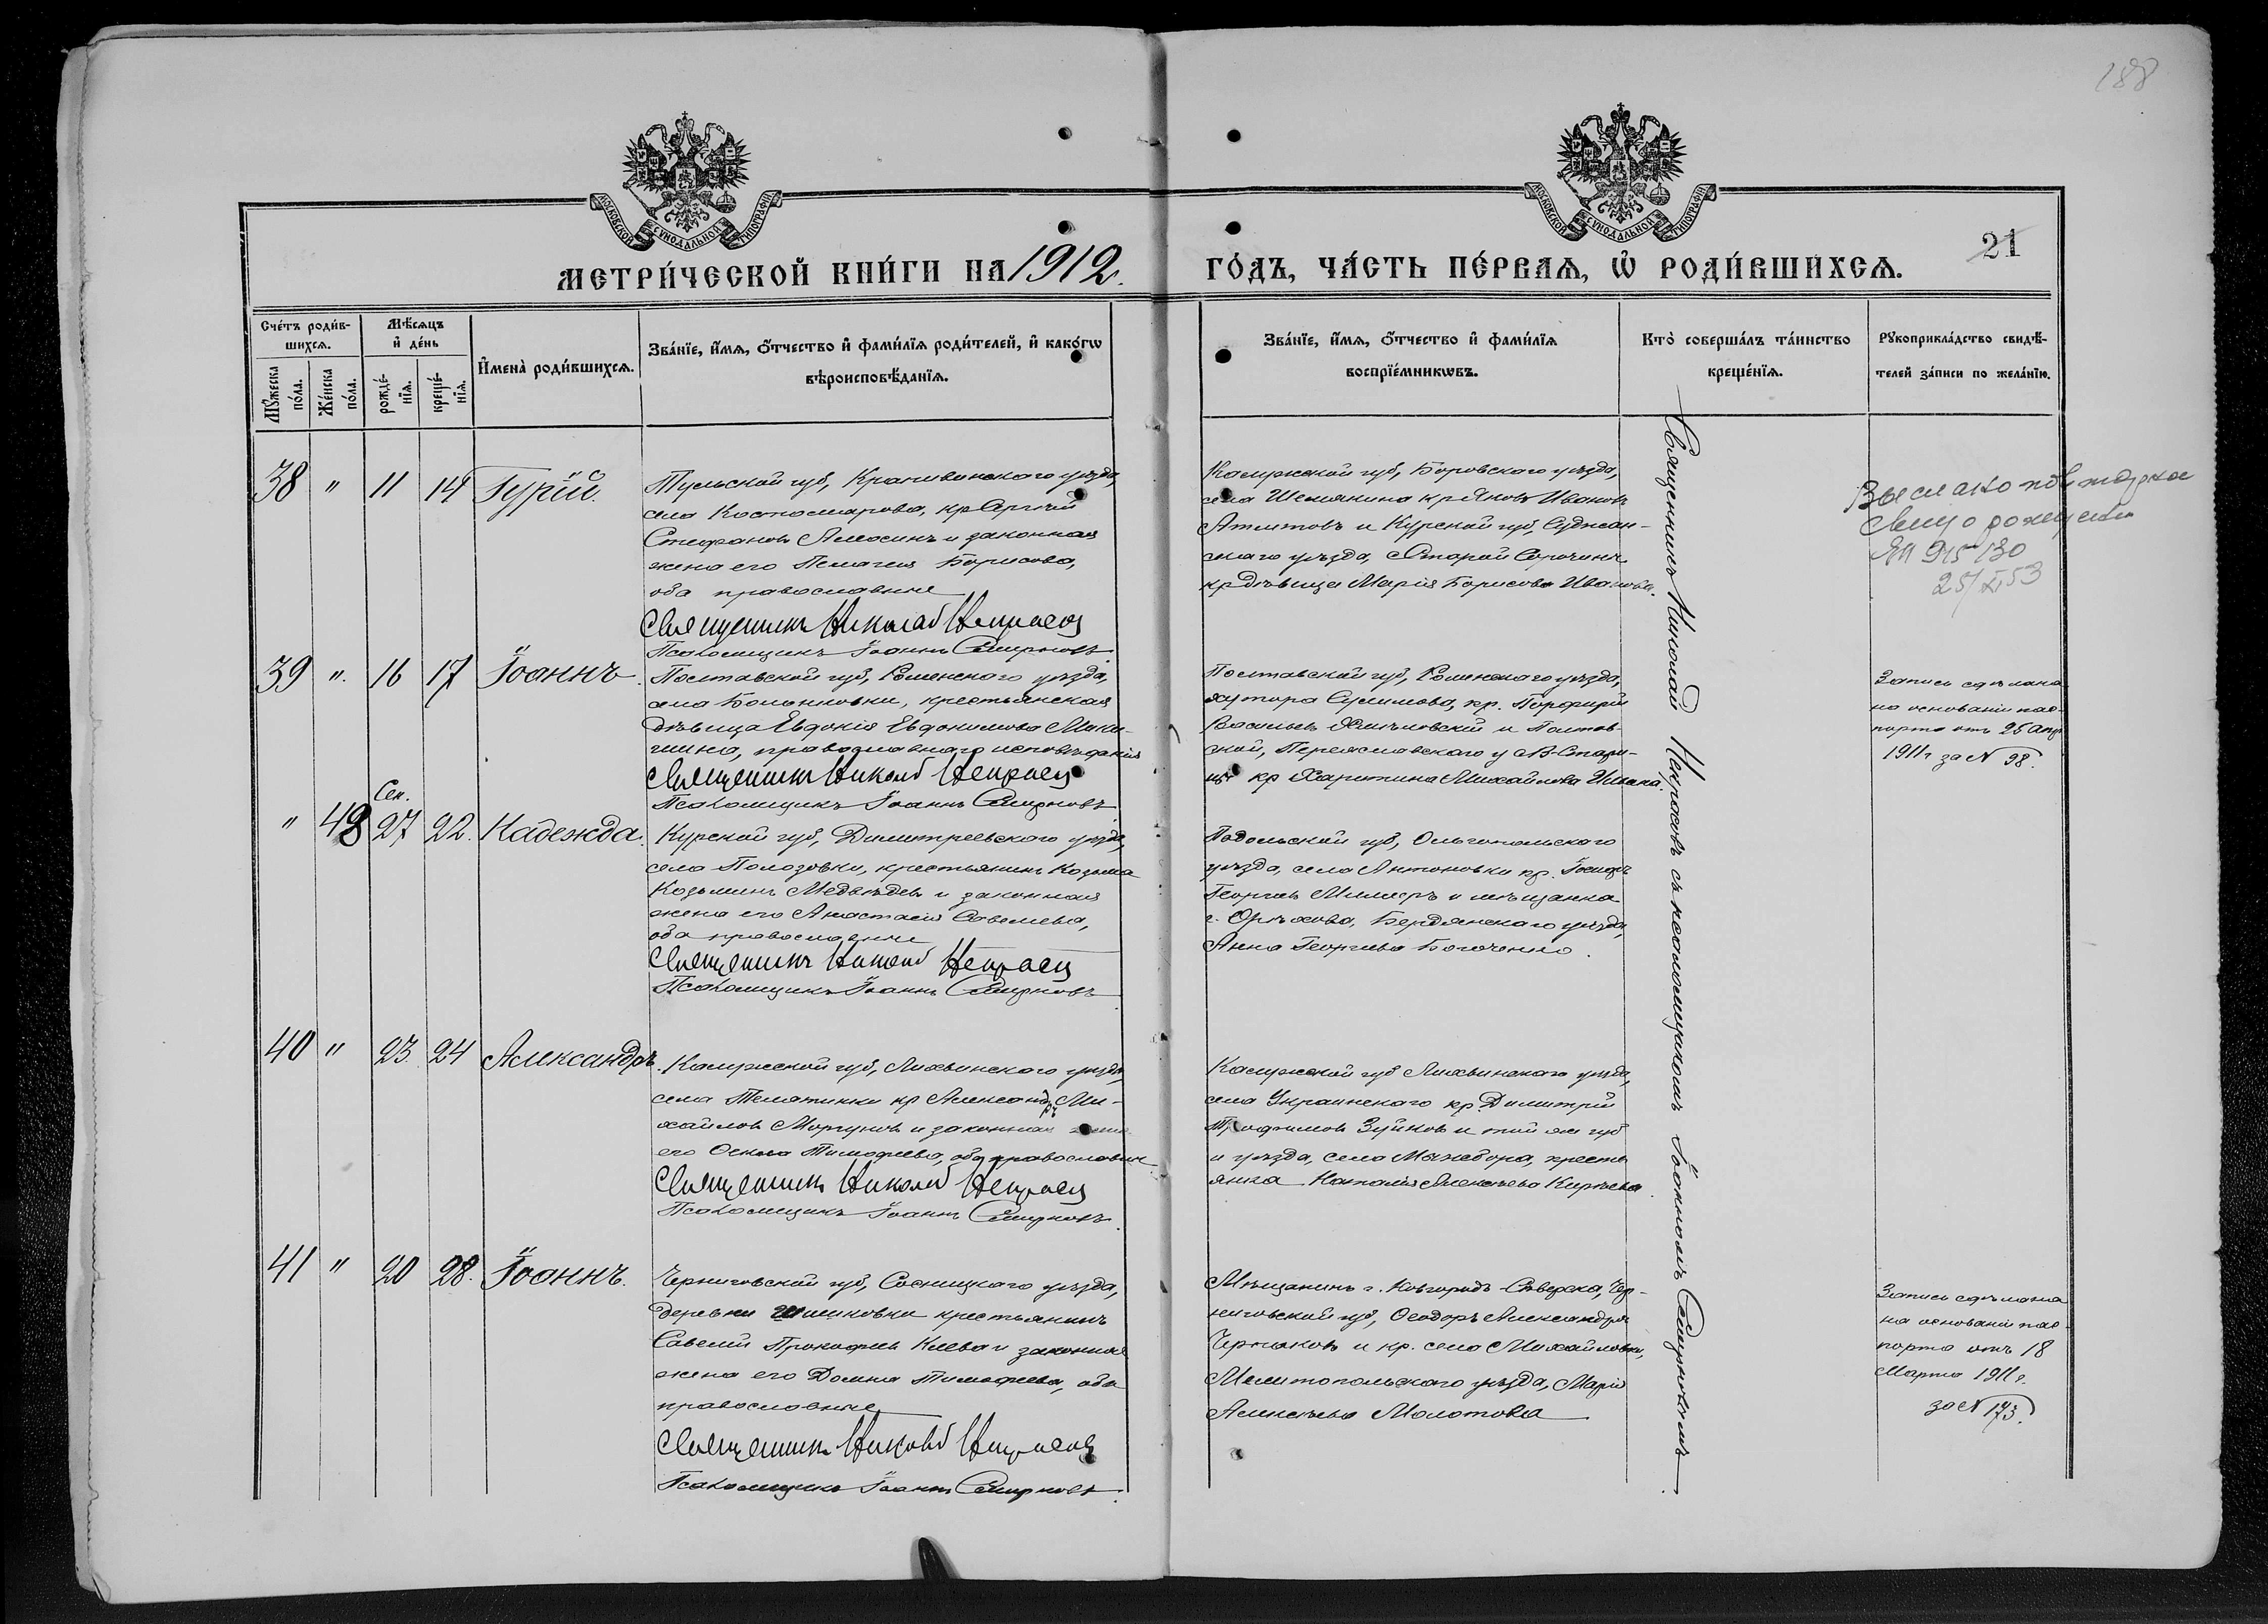 188
МОСКОВСКОЙ СѴНОДАЛЬНОЙ ТИПОГРАФІИ
МОСКОВСКОЙ СѴНОДАЛЬНОЙ ТИПОГРАФІИ
МЕТРИ́ЧЕСКОЙ КНИ́ГИ НА 1912.
ГО́ДЪ, ЧА́СТЬ ПЕ́РВАѦ, Ѽ РОДИ́ВШИХСѦ.
21
Сче́тъ роди́в-
шихсѧ.
Мѣ́сѧцъ
и҆ де́нь
Мꙋ́жеска
по́ла.
Же́нска
по́ла.
рожде́-
нїѧ.
креще́-
нїѧ.
И҆мена̀ роди́вшихсѧ.
Зва́нїе, и҆́мѧ, ѻ҆́тчество и҆ фами́лїѧ роди́телей, и҆ како́гѡ
вѣроисповѣ́данїѧ.
Зва́нїе, и҆́мѧ, ѻ҆́тчество и҆ фами́лїѧ
воспрїе́мникѡвъ.
Кто̀ соверша́лъ та́инство
креще́нїѧ.
Рꙋкоприкла́дство свидѣ́-
телей за́писи по жела́нїю.
38 " 11 14 Гурій.
Тульской губ, Крапивинскаго уѣзда,
села Костомарова, кр Сергій
Стефановъ Алесинъ и законная
жена его Пелагея Борисова,
оба православные
Священникъ Николай Некрасов
Псаломщикъ Іоаннъ Смирновъ.
Калужской губ, Боровскаго уѣзда,
села Шемякина кр Яковъ Ивановъ
и Курской губ, Суджан-
скаго уѣзда, Старой Сорочины
кр дѣвица Марія Борисова Иванова.
Выслано повторное
свид о рождении
ЯП 915130
25/XI 53
39 ". 16 17 Іоаннъ.
Полтавской губ, Роменскаго уѣзда,
села крестьянская
дѣвица Евдокія Евдокимова Мики-
шина, православнаго исповѣданія
Священникъ Николай Некрасов
Псаломщикъ Іоаннъ Смирновъ.
Полтавской губ, Роменскаго уѣзда,
хутора Сулимова, кр. Порфирій
Васильевъ Хмѣловскій и Полтав-
ской, Переяславскаго у В-Стари-
цы кр Харитина Михайлова
Запись сдѣлана
на основаніи пас-
порта отъ 25 апр
1911 г за № 98.
Сен.
" 48 27 22. Надежда.
Курской губ, Димитріевскаго уѣзда,
села Полозовки, крестьянинъ Козьма
Козьминъ Медвѣдевъ и законная
жена его Анастасія Савельева,
оба православные
Священникъ Николай Некрасов
Псаломщикъ Іоаннъ Смирновъ.
Подольской губ, Ольгопольскаго
уѣзда, села Антоновки кр. Іосифъ
Георгіевъ Миллеръ и мѣщанка
г. Орѣхова, Бердянскаго уѣзда,
Анна Георгіева Богоченко.
40 " 23 24 Александръ.
Калужской губ, Лихвинскаго уѣзда,
села кр Александръ Ми-
хайловъ Моргуновъ и законная жена
его Ѳекла Тимофеева, оба православные
Священникъ Николай Некрасов
Псаломщикъ Іоаннъ Смирновъ.
Калужской губ Лихвинскаго уѣзда,
села Украинскаго кр Димитрій
Трофимовъ Зуйковъ и той же губ
и уѣзда, села Мызебора, кресть
янка Наталія Алексѣева Кирѣева
41 " 20 28. Іоаннъ.
Черниговской губ, Сосницкаго уѣзда,
деревни Шишковки крестьянинъ
Савелій Прокофіевъ Клева и законная
жена его Домна Тимофеева, оба
православные
Священникъ Николай Некрасовъ
Псаломщикъ Іоаннъ Смирновъ.
Мѣщанинъ г. Новгородъ-Сѣверска, Чер-
ниговской губ, Ѳеодоръ Александровъ
Чертковъ и кр. села Михайловки,
Мелитопольскаго уѣзда, Марія
Алексѣева Молотова
Запись сдѣлана
на основаніи пас-
порта отъ 18
Марта 1911 г.
за № 173.
Священникъ Николай Некрасовъ съ псаломщикомъ Іоанномъ Смирновымъ